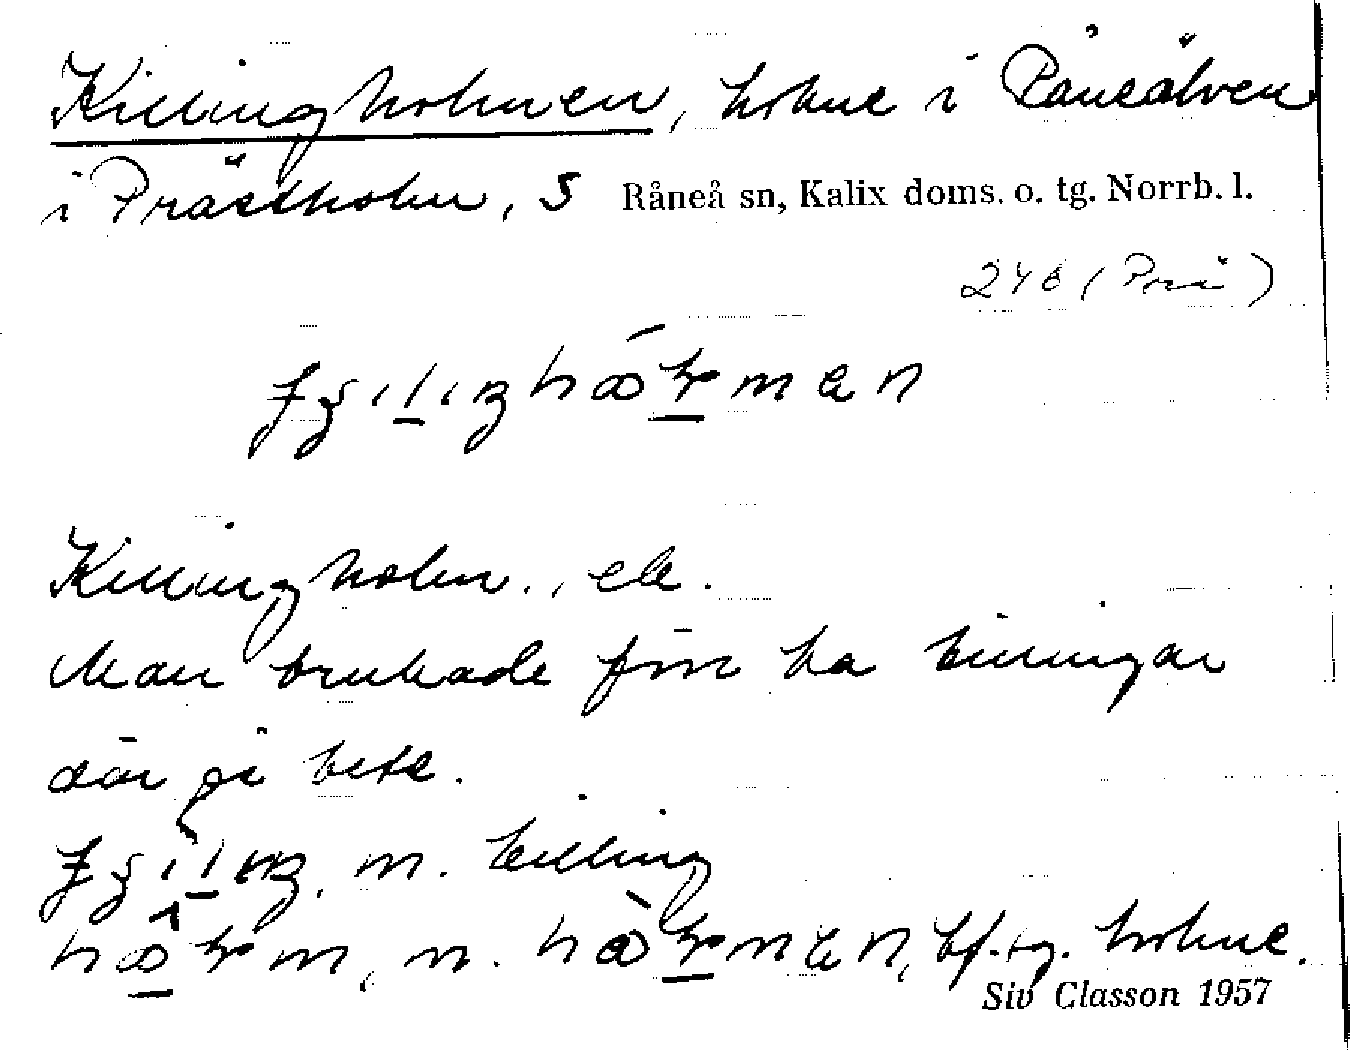 Killingholmen, holme i Råneälven
i Prästholm, S Råneå sn, Kalix doms. o. tg. Norrb. l.
246 (Prä)
Killingholm., ek.
Man brukade förr ha killingar
där på bete.
m. killing
n. bf. sg. holme.
Siv Classon 1957